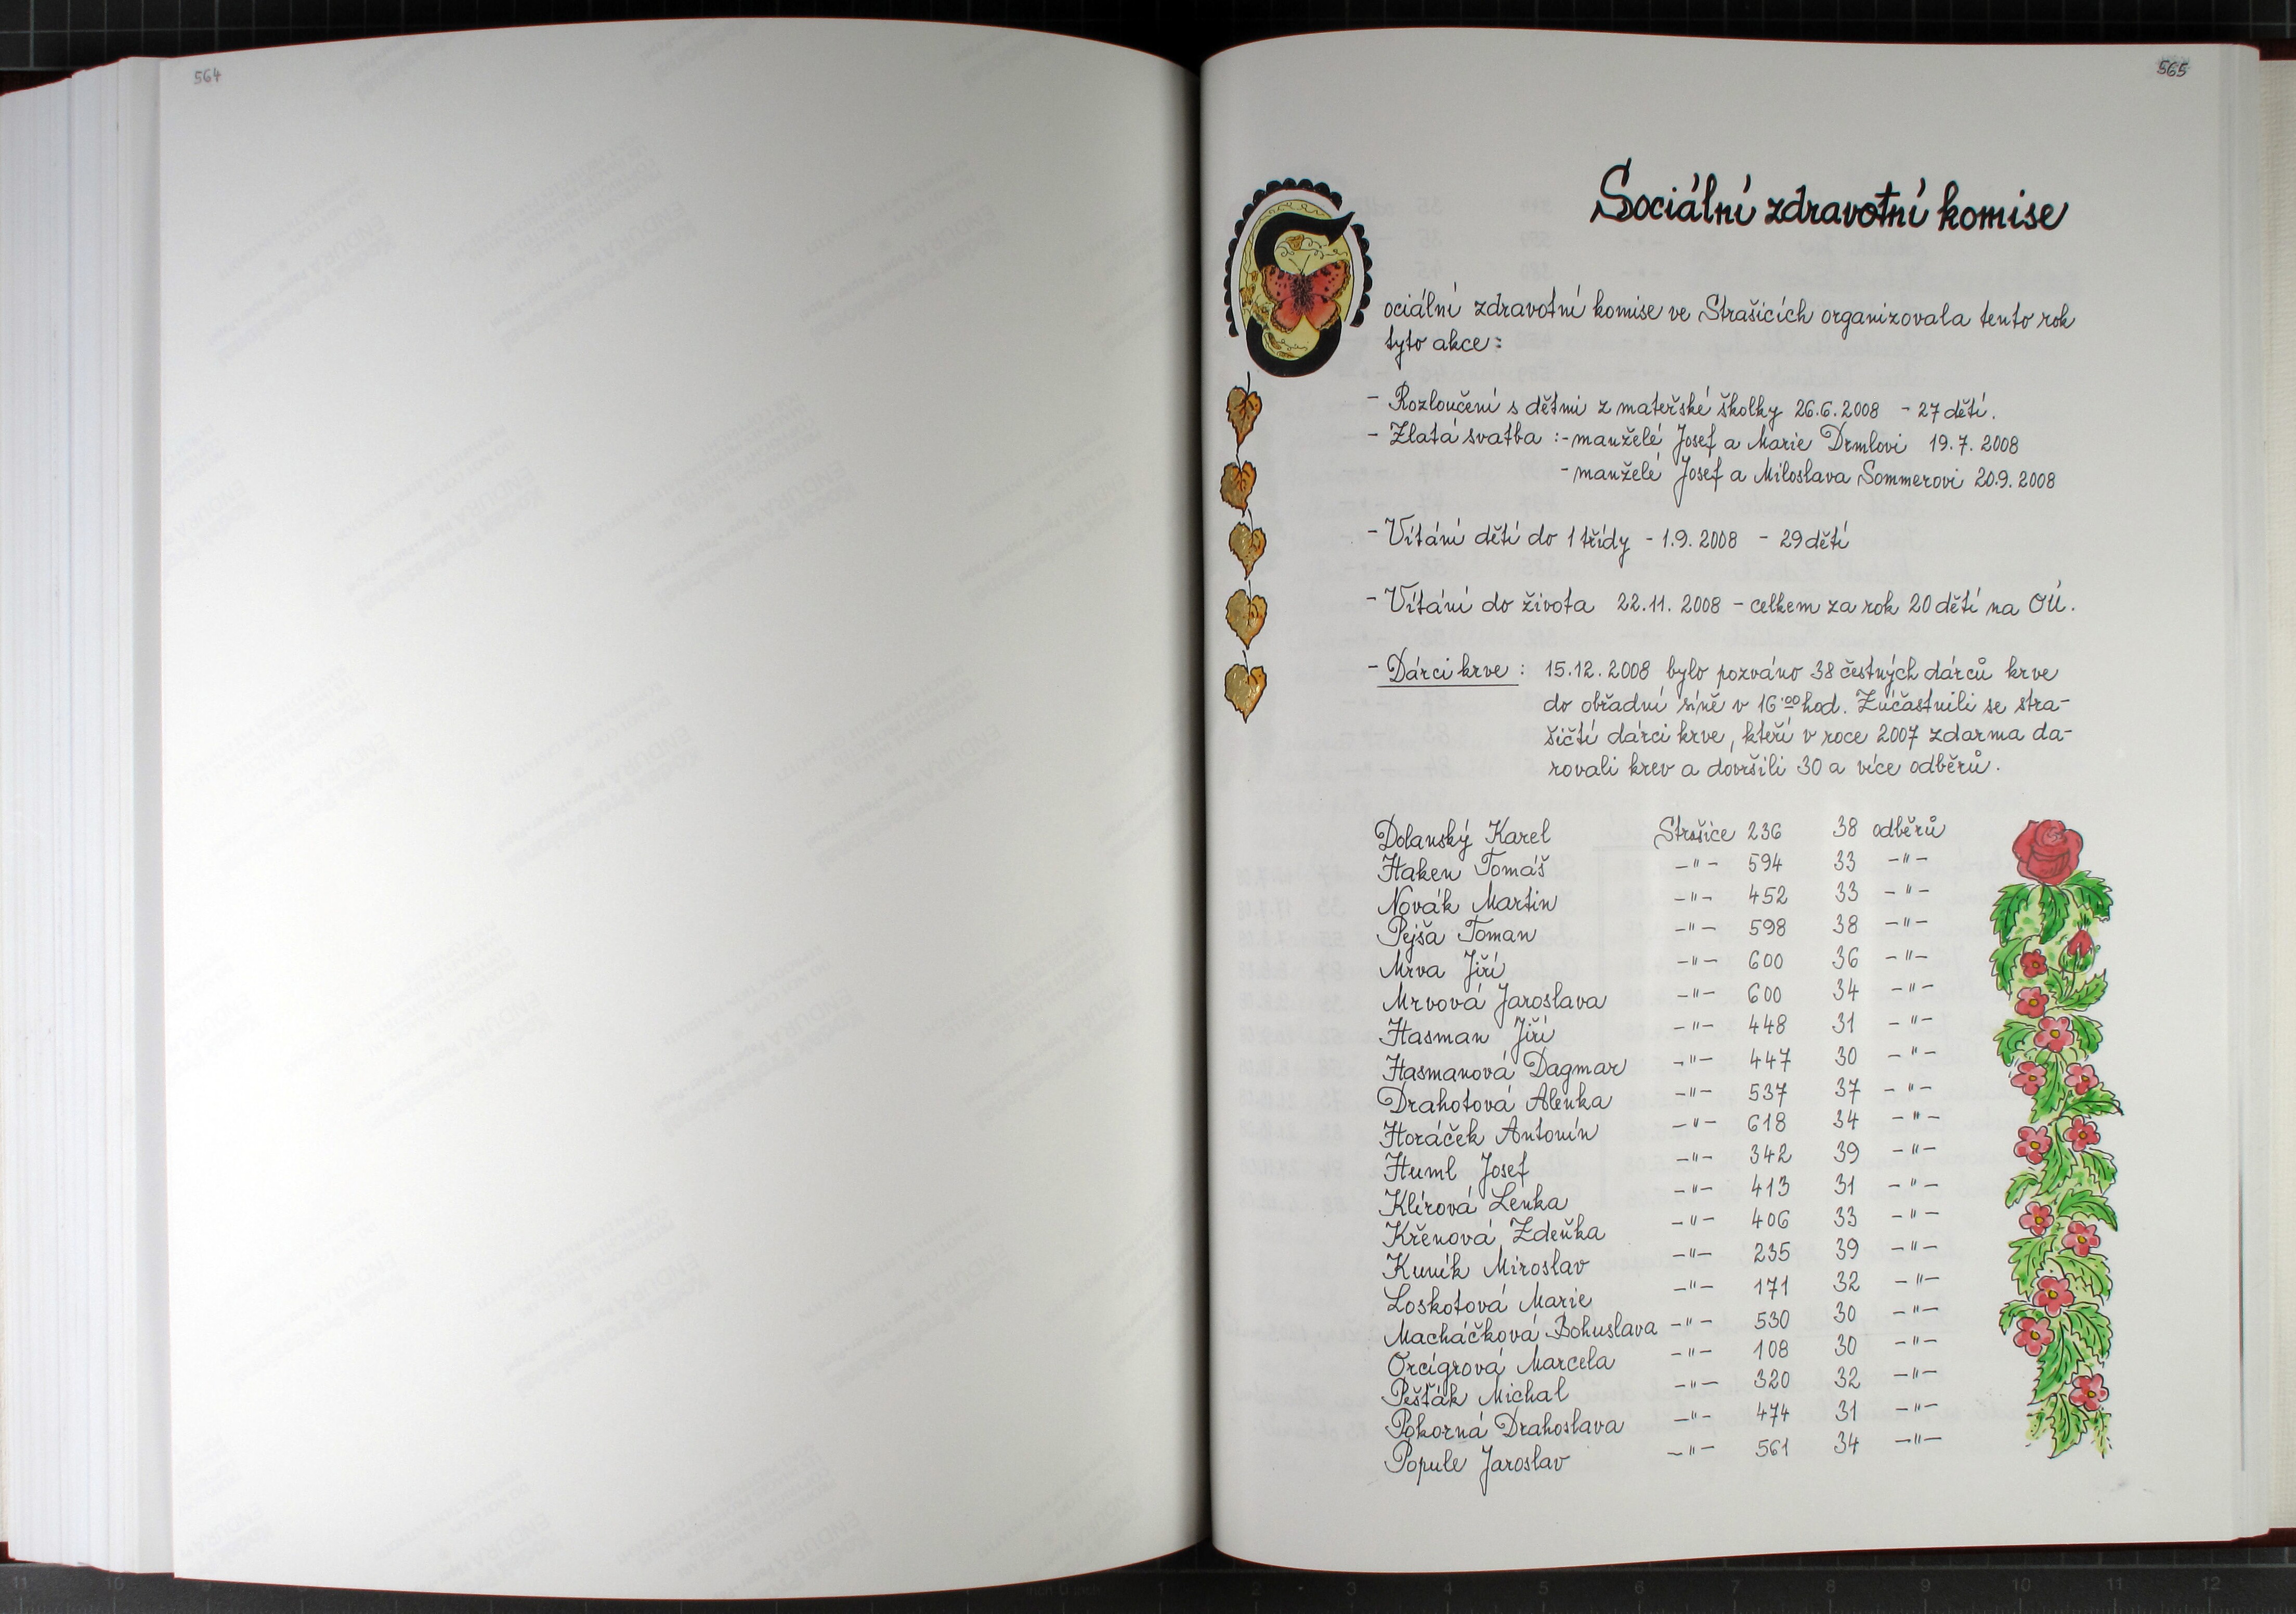 564
565
Sociální zdravotní komise
Sociální zdravotní komise ve Strašicích organizovala tento rok
tyto akce:
- Rozloučení s dětmi z mateřské školky 26.6.2008 - 27 dětí.
- Zlatá svatba :- manželé Josef a Marie Drmlovi 19.7.2008
- manželé Josef a Miloslava Sommerovi 20.9.2008
- Vítání dětí do 1 třídy - 1.9.2008 - 29 dětí
- Vítání do života 22.11.2008 - celkem za rok 20 dětí na OÚ.
- Dárci krve : 15.12.2008 bylo pozváno 38 čestných dárců krve
do obřadní síně v 16.00 hod. Zúčastnili se stra-
šičtí dárci krve, kteří v roce 2007 zdarma da-
rovali krev a dovršili 30 a více odběrů.
Dolanský Karel Strašice 236 38 odběrů
Haken Tomáš -"- 594 33 -"-
Novák Martin -"- 452 33 -"-
Pejša Toman -"- 598 38 -"-
Mrva Jiří -"- 600 36 -"-
Mrvová Jaroslava -"- 600 34 -"-
Hasman Jiří -"- 448 31 -"-
Hasmanová Dagmar -"- 447 30 -"-
Drahotová Alenka -"- 537 37 -"-
Horáček Antonín -"- 618 34 -"-
Huml Josef -"- 342 39 -"-
Klírová Lenka -"- 413 31 -"-
Křenová Zdeňka -"- 406 33 -"-
Kuník Miroslav -"- 235 39 -"-
Loskotová Marie -"- 171 32 -"-
Macháčková Bohuslava -"- 530 30 -"-
Orcígrová Marcela -"- 108 30 -"-
Pešťák Michal -"- 320 32 -"-
Pokorná Drahoslava -"- 474 31 -"-
Popule Jaroslav -"- 561 34 -"-